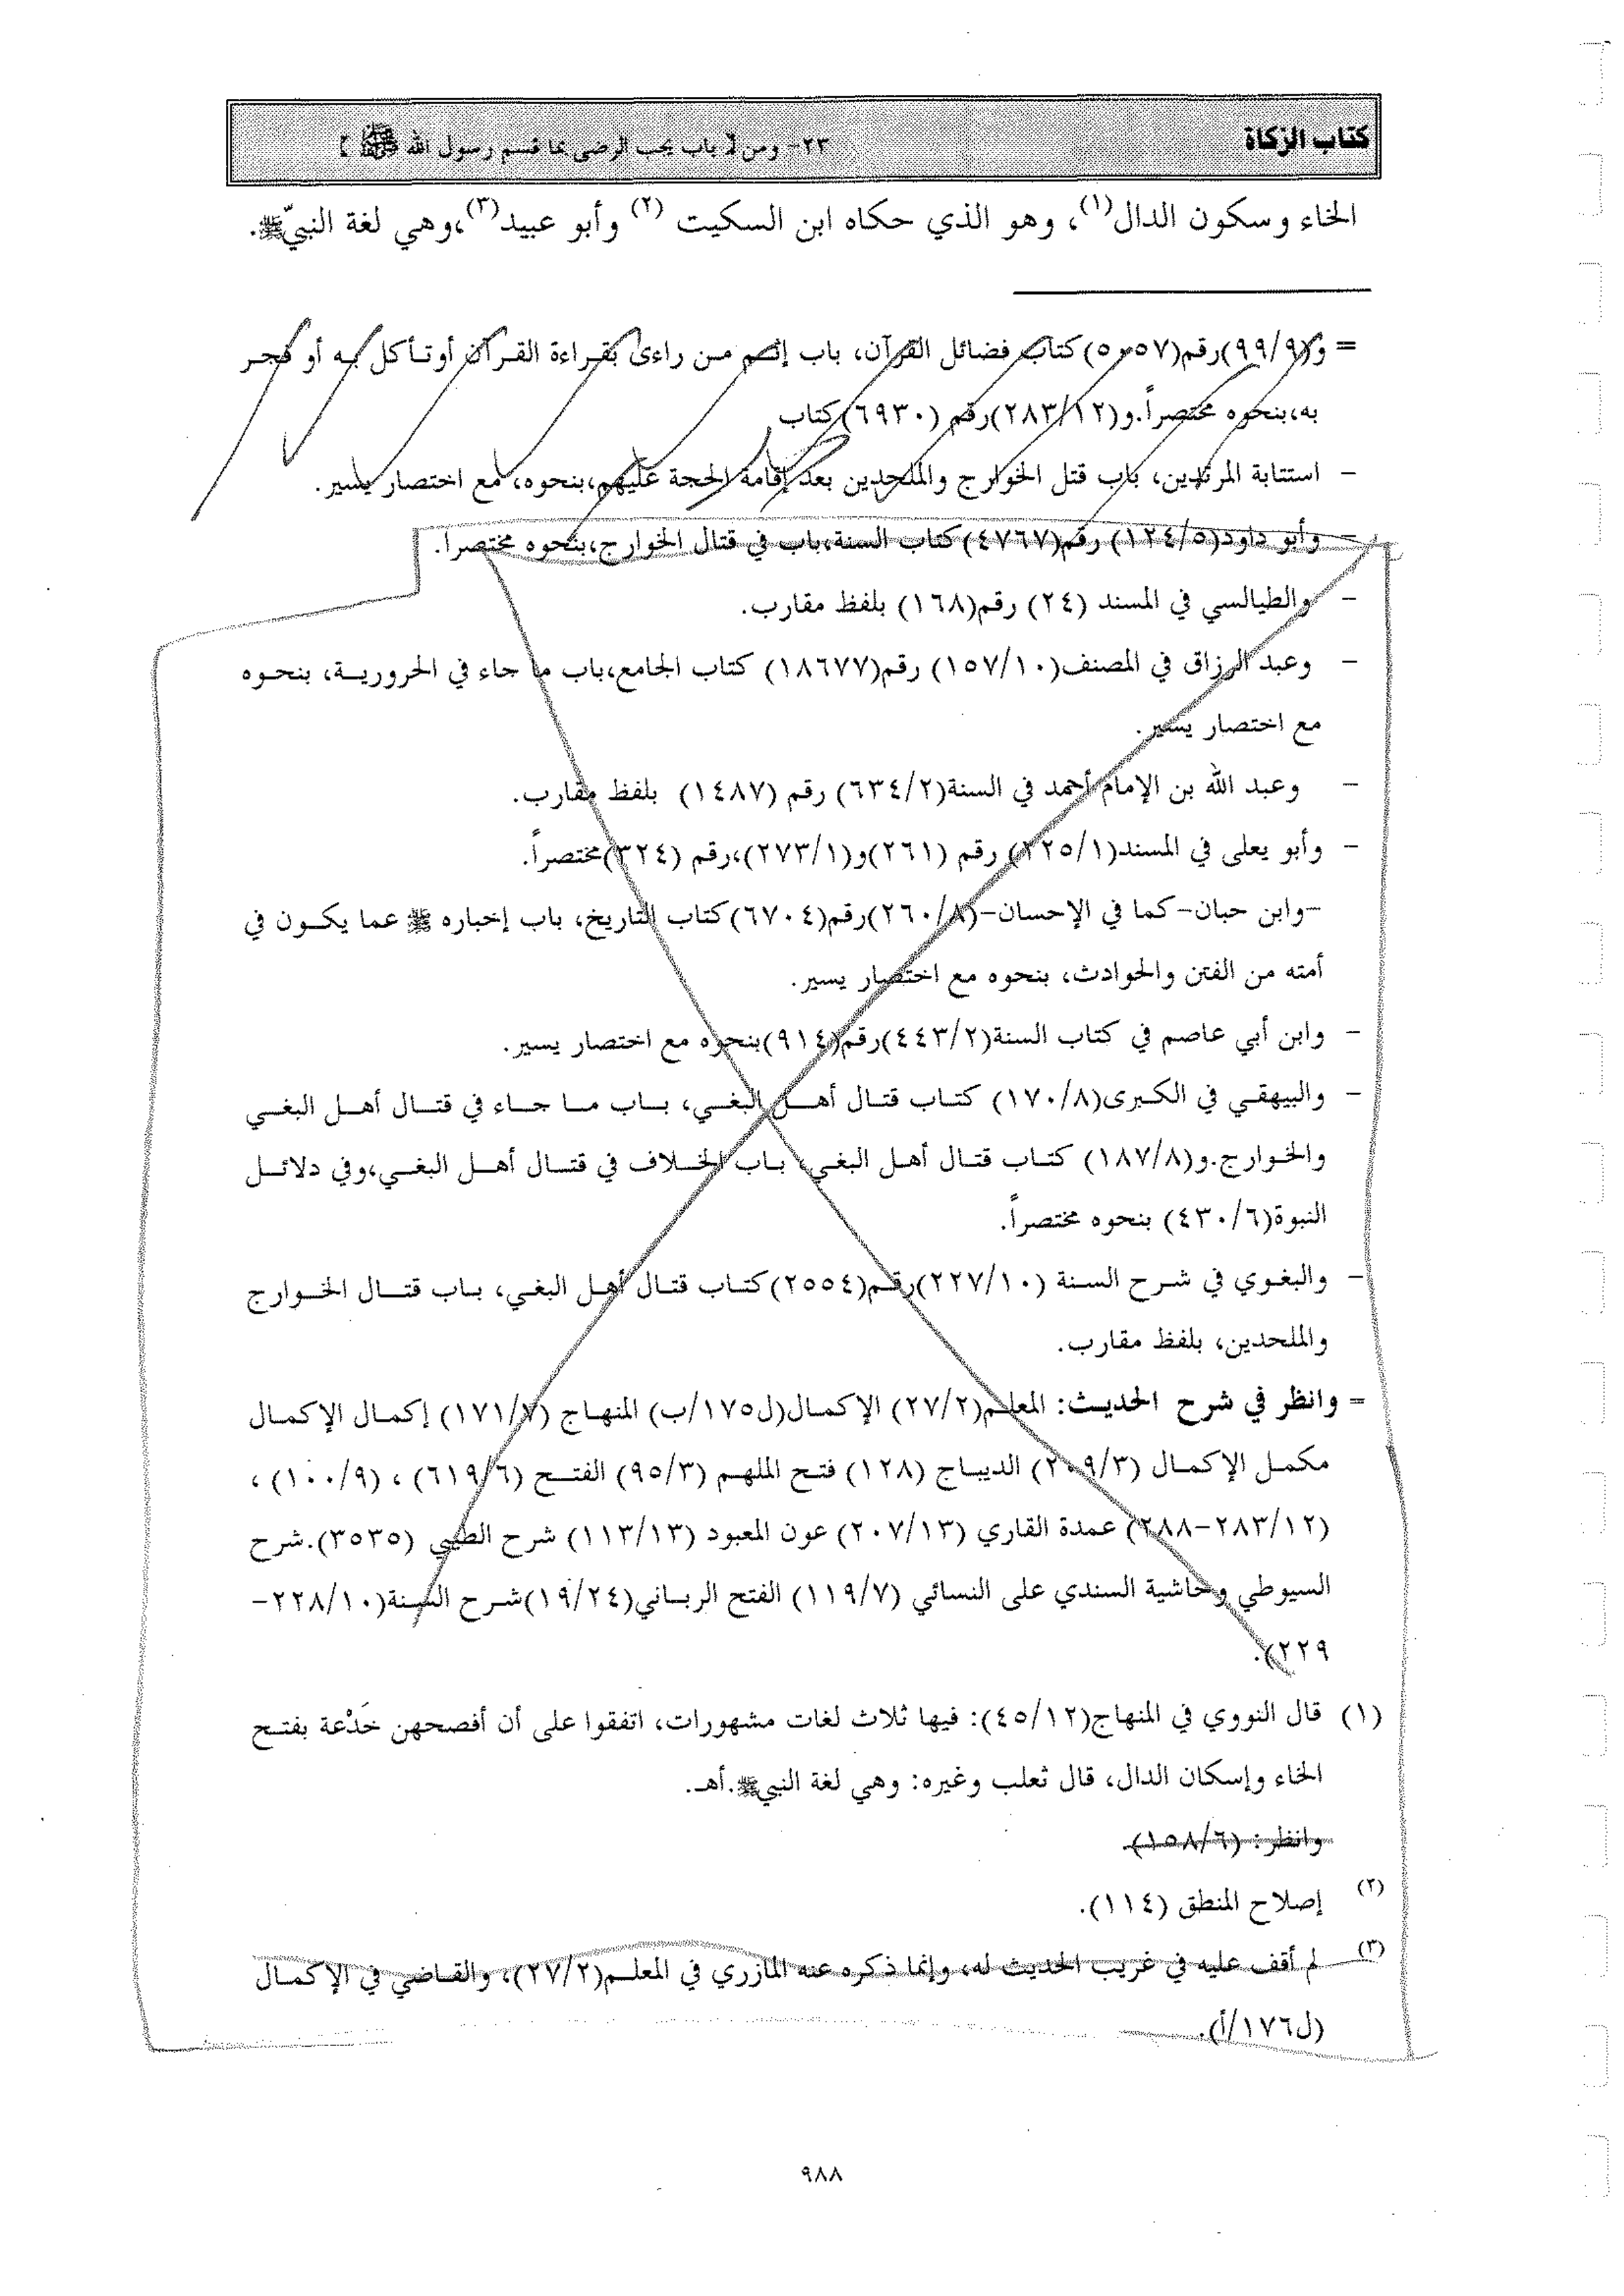 كتاب الزكاة
٢٣- ومن [ باب يجب الرضى بما قسم رسول الله ﷺ ]
الخاء وسكون الدال(١)، وهو الذي حكاه ابن السكيت (٢) وأبو عبيد(٣)،وهي لغة النبيّ ﷺ.
= و(٩٩/٩)رقم(٥٠٥٧)كتاب فضائل القرآن، باب إثم من راءى بقراءة القرآن أو تأكل به أو فجر
به،بنحوه مختصراً.و(٢٨٣/١٢)رقم (٦٩٣٠)كتاب
- استتابة المرتدين، باب قتل الخوارج والملحدين بعد إقامة الحجة عليهم،بنحوه، مع اختصار يسير.
- وأبو داود(١٢٤/٥) رقم(٤٧٦٧)كتاب السنة،باب في قتال الخوارج،بنحوه مختصراً.
- والطيالسي في المسند (٢٤) رقم(١٦٨) بلفظ مقارب.
- وعبد الرزاق في المصنف(١٥٧/١٠) رقم(١٨٦٧٧) كتاب الجامع،باب ما جاء في الحرورية، بنحوه
مع اختصار يسير.
- وعبد الله بن الإمام أحمد في السنة(٦٣٤/٢) رقم (١٤٨٧) بلفظ مقارب.
- وأبو يعلى في المسند(٢٢٥/١) رقم (٢٦١)و(٢٧٣/١)،رقم (٣٢٤)مختصراً.
-وابن حبان-كما في الإحسان-(٢٦٠/٨)رقم(٦٧٠٤)كتاب التاريخ، باب إخباره ﷺ عما يكون في
أمته من الفتن والحوادث، بنحوه مع اختصار يسير.
- وابن أبي عاصم في كتاب السنة(٤٤٣/٢)رقم(٩١٤)بنحوه مع اختصار يسير.
- والبيهقي في الكبرى(١٧٠/٨) كتاب قتال أهل البغي، باب ما جاء في قتال أهل البغي
والخوارج.و(١٨٧/٨) كتاب قتال أهل البغي، باب الخلاف في قتال أهل البغي،وفي دلائل
النبوة(٤٣٠/٦) بنحوه مختصراً.
- والبغوي في شرح السنة (٢٢٧/١٠)رقم(٢٥٥٤)كتاب قتال أهل البغي، باب قتال الخوارج
والملحدين، بلفظ مقارب.
= وانظر في شرح الحديث: المعلم(٢٧/٢) الإكمال(ل١٧٥/ب) المنهاج (١٧١/٧) إكمال الإكمال
مكمل الإكمال (٢٠٩/٣) الديباج (١٢٨) فتح الملهم (٩٥/٣) الفتح (٦١٩/٦) ، (١٠٠/٩) ،
(٢٨٣/١٢-٢٨٨) عمدة القاري (٢٠٧/١٣) عون المعبود (١١٣/١٣) شرح الطيبي (٣٥٣٥).شرح
السيوطي وحاشية السندي على النسائي (١١٩/٧) الفتح الرباني(١٩/٢٤)شرح السنة(٢٢٨/١٠-
٢٢٩).
(١) قال النووي في المنهاج(٤٥/١٢): فيها ثلاث لغات مشهورات، اتفقوا على أن أفصحهن خَدْعة بفتح
الخاء وإسكان الدال، قال ثعلب وغيره: وهي لغة النبي ﷺ.أهـ.
وانظر: (١٥٨/٦).
(٢) إصلاح المنطق (١١٤).
(٣) لم أقف عليه في غريب الحديث له، وإنما ذكره عنه المازري في المعلم(٢٧/٢)، والقاضي في الإكمال
(ل١٧٦/أ).
٩٨٨